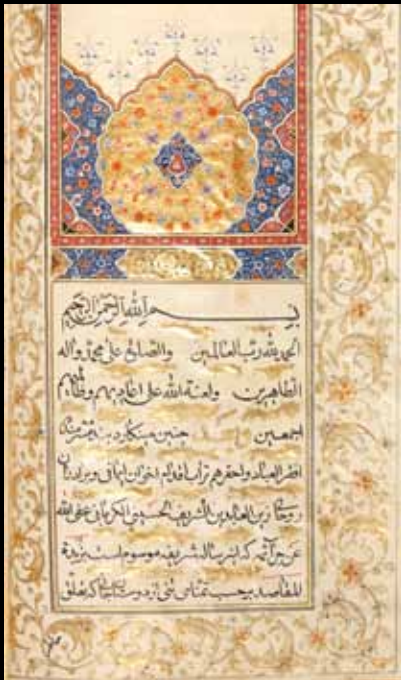 بسم الله الرحمن الرحیم
الحمد لله رب العالمین والصلوة علی محمد وآله
الطاهرین ولعنة الله علی اعادیهم وظالمیهم
اجمعین چنین مینکارد بنده
افقر العباد واحقرهم تراب اقدام اخوان ایمانی وبرادران
روحانی زین العابدین الشریف الحسینی الکرمانی عفی الله
عن جرائمه که این رساله شریف موسوم است بزبدة
المقاصد برحسب تمنای بعضی از دوستان که تعلق